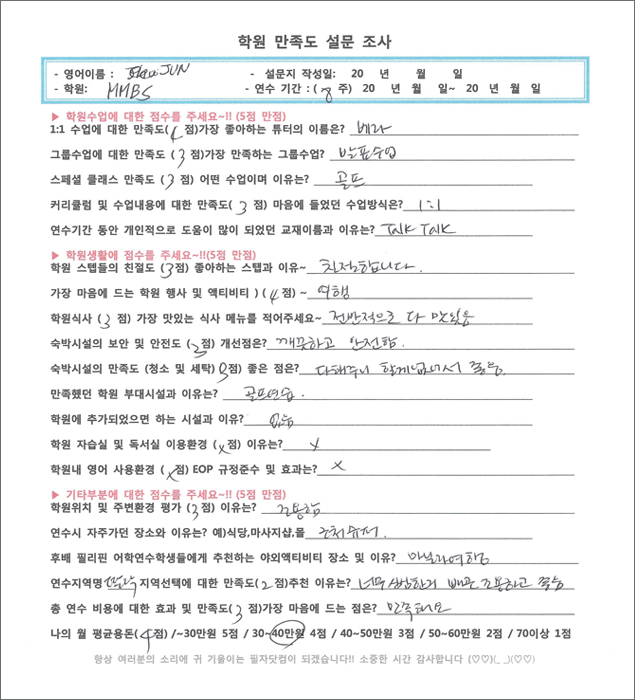 학원 만족도 설문 조사
- 영어이름 : JUN - 설문지 작성일: 20 년 월 일
- 학원: MMBS - 연수 기간 : (8 주) 20 년 월 일~ 20 년 월 일
▶ 학원수업에 대한 점수를 주세요~!! (5점 만점)
1:1 수업에 대한 만족도(4점)가장 좋아하는 튜터의 이름은? 베라
그룹수업에 대한 만족도 (3점)가장 만족하는 그룹수업? 발표수업
스페셜 클래스 만족도 (3점) 어떤 수업이며 이유는? 골프
커리큘럼 및 수업내용에 대한 만족도( 3 점) 마음에 들었던 수업방식은? 1:1
연수기간 동안 개인적으로 도움이 많이 되었던 교재이름과 이유는? Talk Talk
▶ 학원생활에 점수를 주세요~!!(5점 만점)
학원 스텝들의 친절도 (3점) 좋아하는 스탭과 이유~ 친절합니다.
가장 마음에 드는 학원 행사 및 액티비티 ) (4점) ~ 여행
학원식사 (3 점) 가장 맛있는 식사 메뉴를 적어주세요~ 전반적으로 다 맛있음
숙박시설의 보안 및 안전도 (3점) 개선점은? 깨끗하고 안전함.
숙박시설의 만족도 (청소 및 세탁) (3점) 좋은 점은? 다해주니 좋음.
만족했던 학원 부대시설과 이유는? 골프연습
학원에 추가되었으면 하는 시설과 이유? 없음
학원 자습실 및 독서실 이용환경 (x점) 이유는? x
학원내 영어 사용환경 (x점) EOP 규정준수 및 효과는? x
▶ 기타부분에 대한 점수를 주세요~!! (5점 만점)
학원위치 및 주변환경 평가 (3점) 이유는? 조용함
연수시 자주가던 장소와 이유는? 예)식당,마사지샵,몰 근처슈퍼.
후배 필리핀 어학연수학생들에게 추천하는 야외액티비티 장소 및 이유? 마닐라여행
연수지역명 지역선택에 대한 만족도(2점)추천 이유는? 너무 조용하고 좋음
총 연수 비용에 대한 효과 및 만족도(3점)가장 마음에 드는 점은? 만족해요
나의 월 평균용돈(4점) /~30만원 5점 / 30~40만원 4점 / 40~50만원 3점 / 50~60만원 2점 / 70이상 1점
항상 여러분의 소리에 귀 기울이는 필자닷컴이 되겠습니다!! 소중한 시간 감사합니다 (♡♡)(_ _)(♡♡)